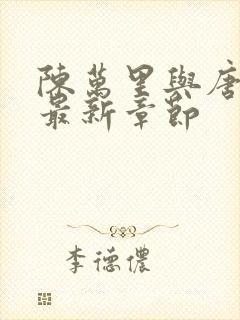 陳萬里與唐
最新章節
李德儂